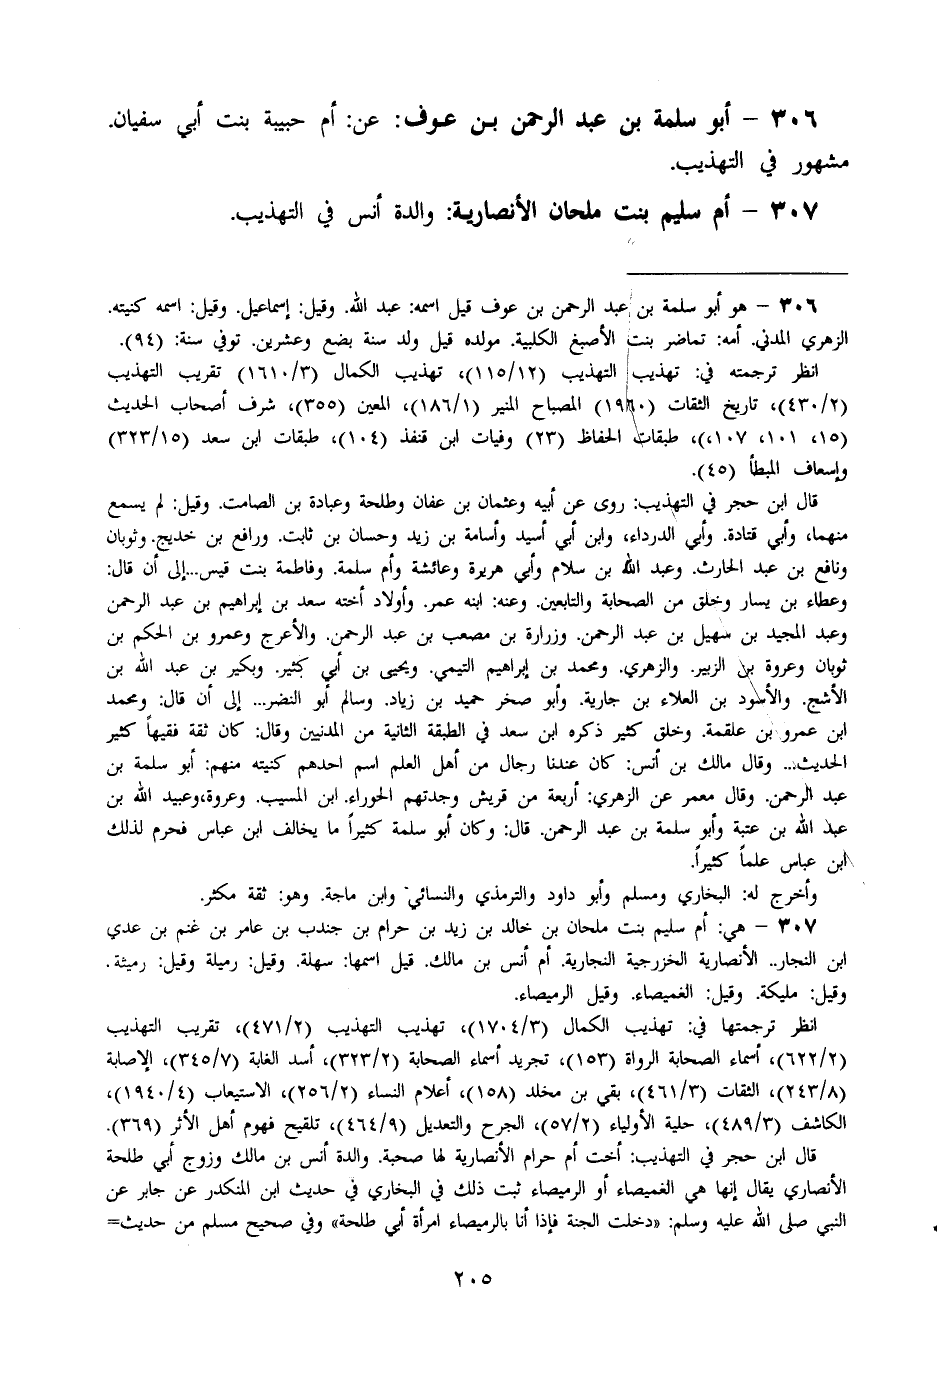 ٣٠٦ – أبو سلمة بن عبد الرحمن بن عوف: عن: أم حبيبة بنت أبي سفيان.
مشهور في التهذيب.
٣٠٧ – أم سليم بنت ملحان الأنصارية: والدة أنس في التهذيب.
٣٠٦ – هو أبو سلمة بن عبد الرحمن بن عوف قيل اسمه: عبد الله. وقيل: إسماعيل. وقيل: اسمه كنيته.
الزهري المدني. أمه: تماضر بنت الأصبغ الكلبية. مولده قيل ولد سنة بضع وعشرين. توفي سنة: (٩٤).
انظر ترجمته في: تهذيب التهذيب (١١٥/١٢)، تهذيب الكمال (١٦١٠/٣) تقريب التهذيب
(٤٣٠/٢)، تاريخ الثقات (١٩٦٠) المصباح المنير (١٨٦/١)، المعين (٣٥٥)، شرف أصحاب الحديث
(١٥، ١٠١، ١٠٧،)، طبقات الحفاظ (٢٣) وفيات ابن قنفذ (١٠٤)، طبقات ابن سعد (٣٢٣/١٥)
وإسعاف المبطأ (٤٥).
قال ابن حجر في التهذيب: روى عن أبيه وعثمان بن عفان وطلحة وعبادة بن الصامت. وقيل: لم يسمع
منهما، وأبي قتادة. وأبي الدرداء، وابن أبي أسيد وأسامة بن زيد وحسان بن ثابت. ورافع بن خديج. وثوبان
ونافع بن عبد الحارث. وعبد الله بن سلام وأبي هريرة وعائشة وأم سلمة. وفاطمة بنت قيس...إلى أن قال:
وعطاء بن يسار وخلق من الصحابة والتابعين. وعنه: ابنه عمر. وأولاد أخته سعد بن إبراهيم بن عبد الرحمن
وعبد المجيد بن سهيل بن عبد الرحمن. وزرارة بن مصعب بن عبد الرحمن. والأعرج وعمرو بن الحكم بن
ثوبان وعروة بن الزبير. والزهري. ومحمد بن إبراهيم التيمي. ويحيى بن أبي كثير. وبكير بن عبد الله بن
الأشج. والأسود بن العلاء بن جارية. وأبو صخر حميد بن زياد. وسالم أبو النضر... إلى أن قال: ومحمد
ابن عمرو بن علقمة. وخلق كثير ذكره ابن سعد في الطبقة الثانية من المدنيين وقال: كان ثقة فقيهاً كثير
الحديث... وقال مالك بن أنس: كان عندنا رجال من أهل العلم اسم احدهم كنيته منهم: أبو سلمة بن
عبد الرحمن. وقال معمر عن الزهري: أربعة من قريش وجدتهم الحوراء. ابن المسيب. وعروة، وعبيد الله بن
عبد الله بن عتبة وأبو سلمة بن عبد الرحمن. قال: وكان أبو سلمة كثيراً ما يخالف ابن عباس فحرم لذلك
ابن عباس علماً كثيراً.
وأخرج له: البخاري ومسلم وأبو داود والترمذي والنسائي وابن ماجة. وهو: ثقة مكثر.
٣٠٧ – هي: أم سليم بنت ملحان بن خالد بن زيد بن حرام بن جندب بن عامر بن غنم بن عدي
ابن النجار.. الأنصارية الخزرجية النجارية. أم أنس بن مالك. قيل اسمها: سهلة. وقيل: رميلة وقيل: رميثة.
وقيل: مليكة. وقيل: الغميصاء. وقيل الرميصاء.
انظر ترجمتها في: تهذيب الكمال (١٧٠٤/٣)، تهذيب التهذيب (٤٧١/٢)، تقريب التهذيب
(٦٢٢/٢)، أسماء الصحابة الرواة (١٥٣)، تجريد أسماء الصحابة (٣٢٣/٢)، أسد الغابة (٣٤٥/٧)، الإصابة
(٢٤٣/٨)، الثقات (٤٦١/٣)، بقي بن مخلد (١٥٨)، أعلام النساء (٢٥٦/٢)، الاستيعاب (١٩٤٠/٤)،
الكاشف (٤٨٩/٣)، حلية الأولياء (٥٧/٢)، الجرح والتعديل (٤٦٤/٩)، تلقيح فهوم أهل الأثر (٣٦٩).
قال ابن حجر في التهذيب: أخت أم حرام الأنصارية لها صحبة. والدة أنس بن مالك وزوج أبي طلحة
الأنصاري يقال إنها هي الغميصاء أو الرميصاء ثبت ذلك في البخاري في حديث ابن المنكدر عن جابر عن
النبي صلى الله عليه وسلم: «دخلت الجنة فإذا أنا بالرميصاء امرأة أبي طلحة» وفي صحيح مسلم من حديث=
٢٠٥